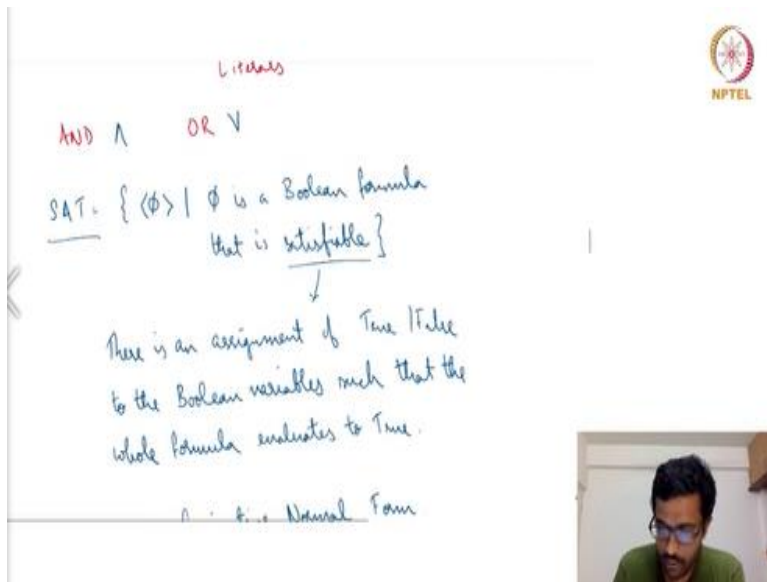 Literals
NPTEL
AND ∧ OR ∨
SAT = { ⟨φ⟩ | φ is a Boolean formula
that is satisfiable }
There is an assignment of True / False
to the Boolean variables such that the
whole formula evaluates to True.
Normal Form